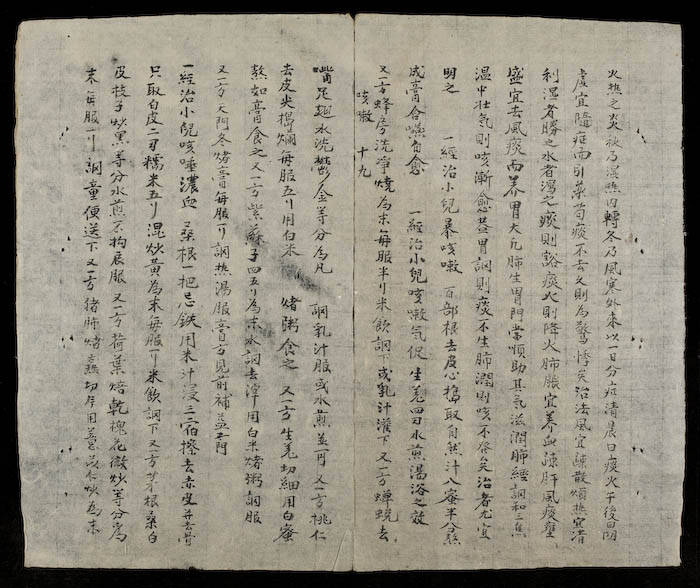 火熱之炎秋乃濕熱內轉冬乃風寒外來以一日分症清晨曰痰火午後曰陰
虛宜隨症而引藥苟痰不去久則為驚悸矣治法風宜疎散煩熱宜清
利濕者勝之水者瀉之痰則豁痰火則降火肺脹宜養血疎肝風痰壅
盛宜去風痰而養胃大凡肺生胃門常順助其氣滋潤肺經調和三焦
溫中壯氣則咳漸愈蓋胃調則痰不生肺潤則咳不發矣治者尤宜
明之 一經治小兒暴咳嗽 百部根去皮心搗取自然汁八蜜半分熬
成膏含嚥自愈 一經治小兒咳嗽氣促 生羌四刃水煎湯浴之效
又一方蜂房洗淨燒為末每服半刂米飲調下或乳汁灌下 又一方蟬蛻去
咳嗽 十九
嘴足翅水洗鬱金等分為凡 調乳汁服或水煎並可 又一方桃仁
去皮尖搗爛每服五刂用白米 煑粥食之 又一方生羌切細用白蜜
熬如膏食之又一方紫蘇子四五刂為末水調去滓用白菜煑粥調服
又一方天門冬煑膏每服一刂調熱湯服膏方見前補益門
一經治小兒咳唾濃血 桑根一把忌鉄用米汁浸三宿擦去赤皮并去骨
只取白皮二刃糯米五刂混炒黃為末每服一刂米飲調下又一方茅根桑白
皮枝子炒黑等分水煎不拘辰服 又一方荷葉焙乾槐花微炒等分為
末每服一刂調童便送下又一方猪肺煑熹切片用薏苡仁炒為末